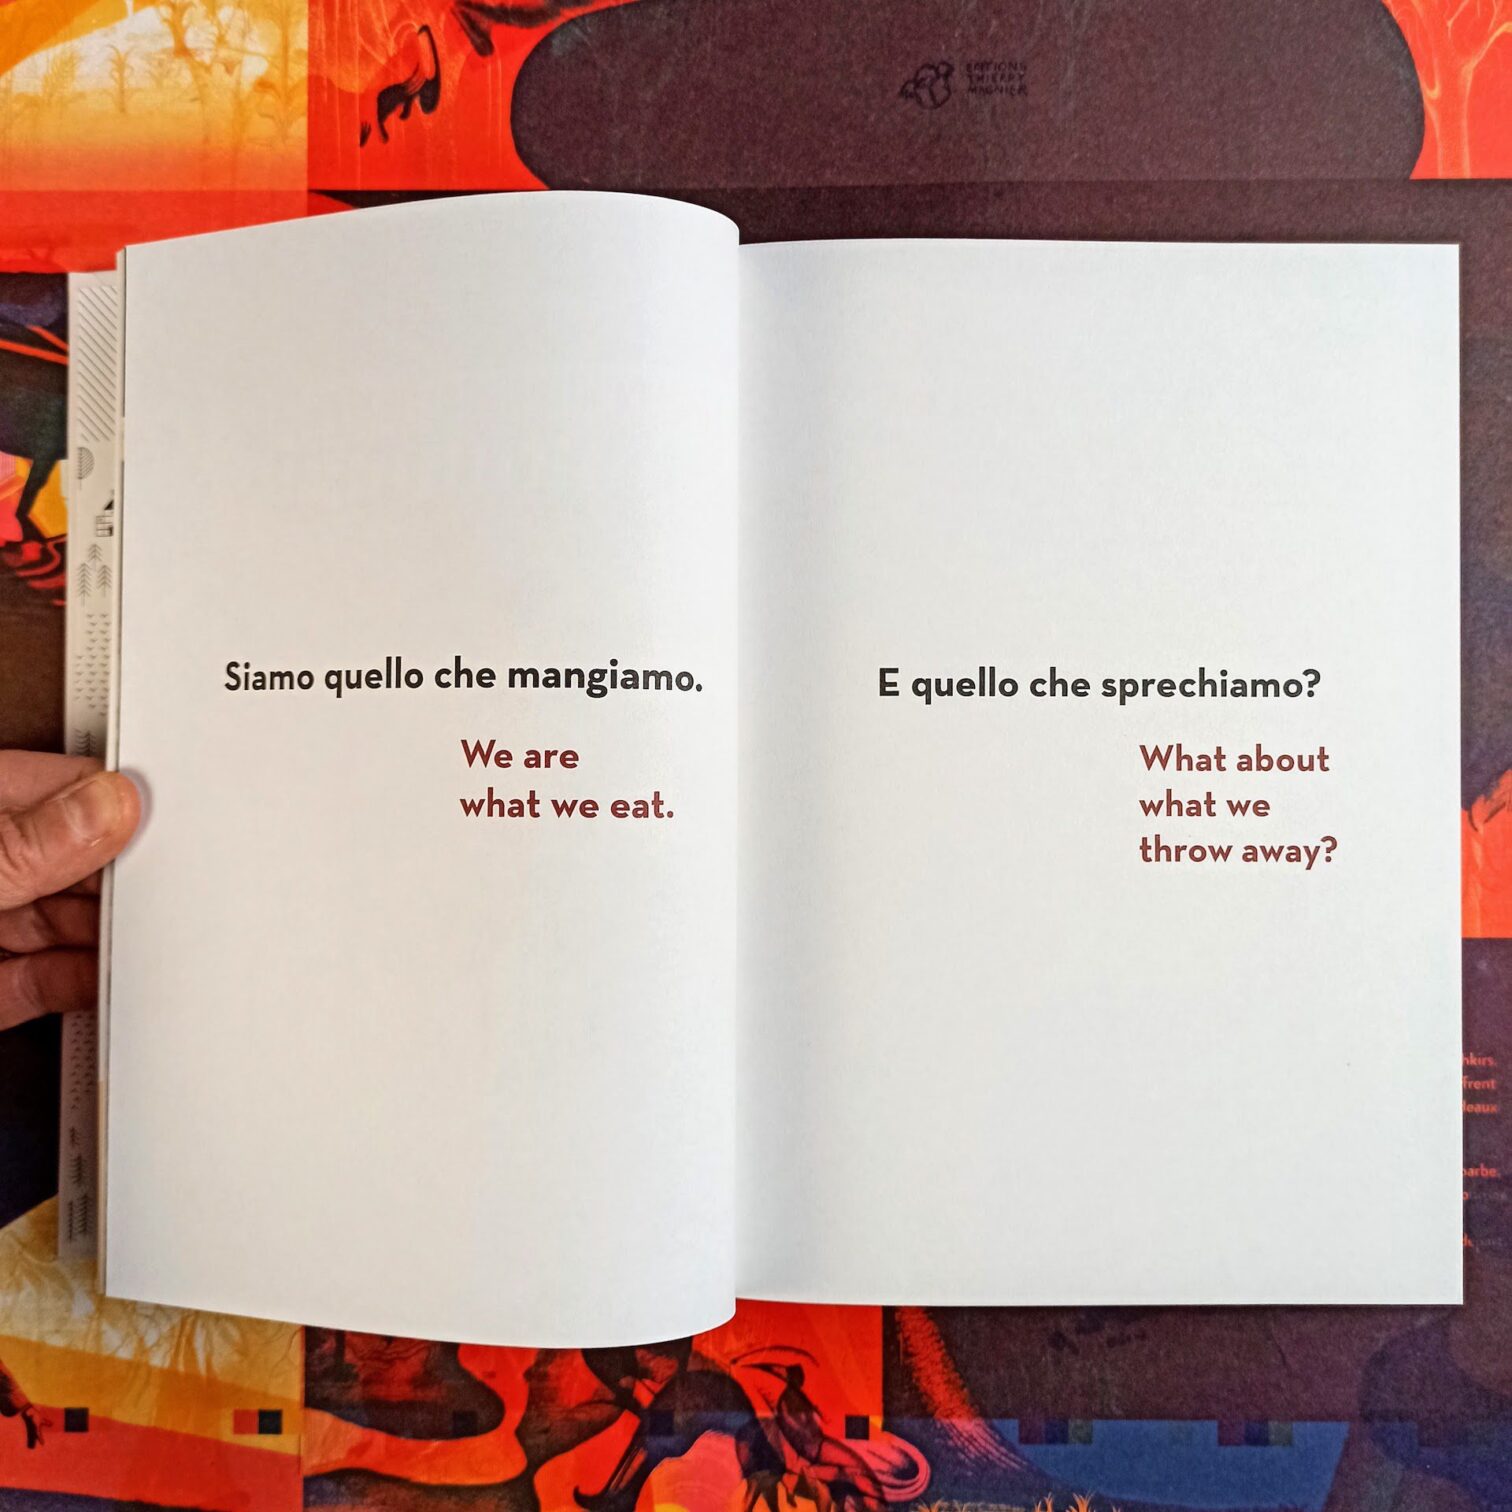 EDITIONS
THIERRY
MAGNIER
Siamo quello che mangiamo.
We are
what we eat.
E quello che sprechiamo?
What about
what we
throw away?
hkirs.
frent
deaux
barbe.